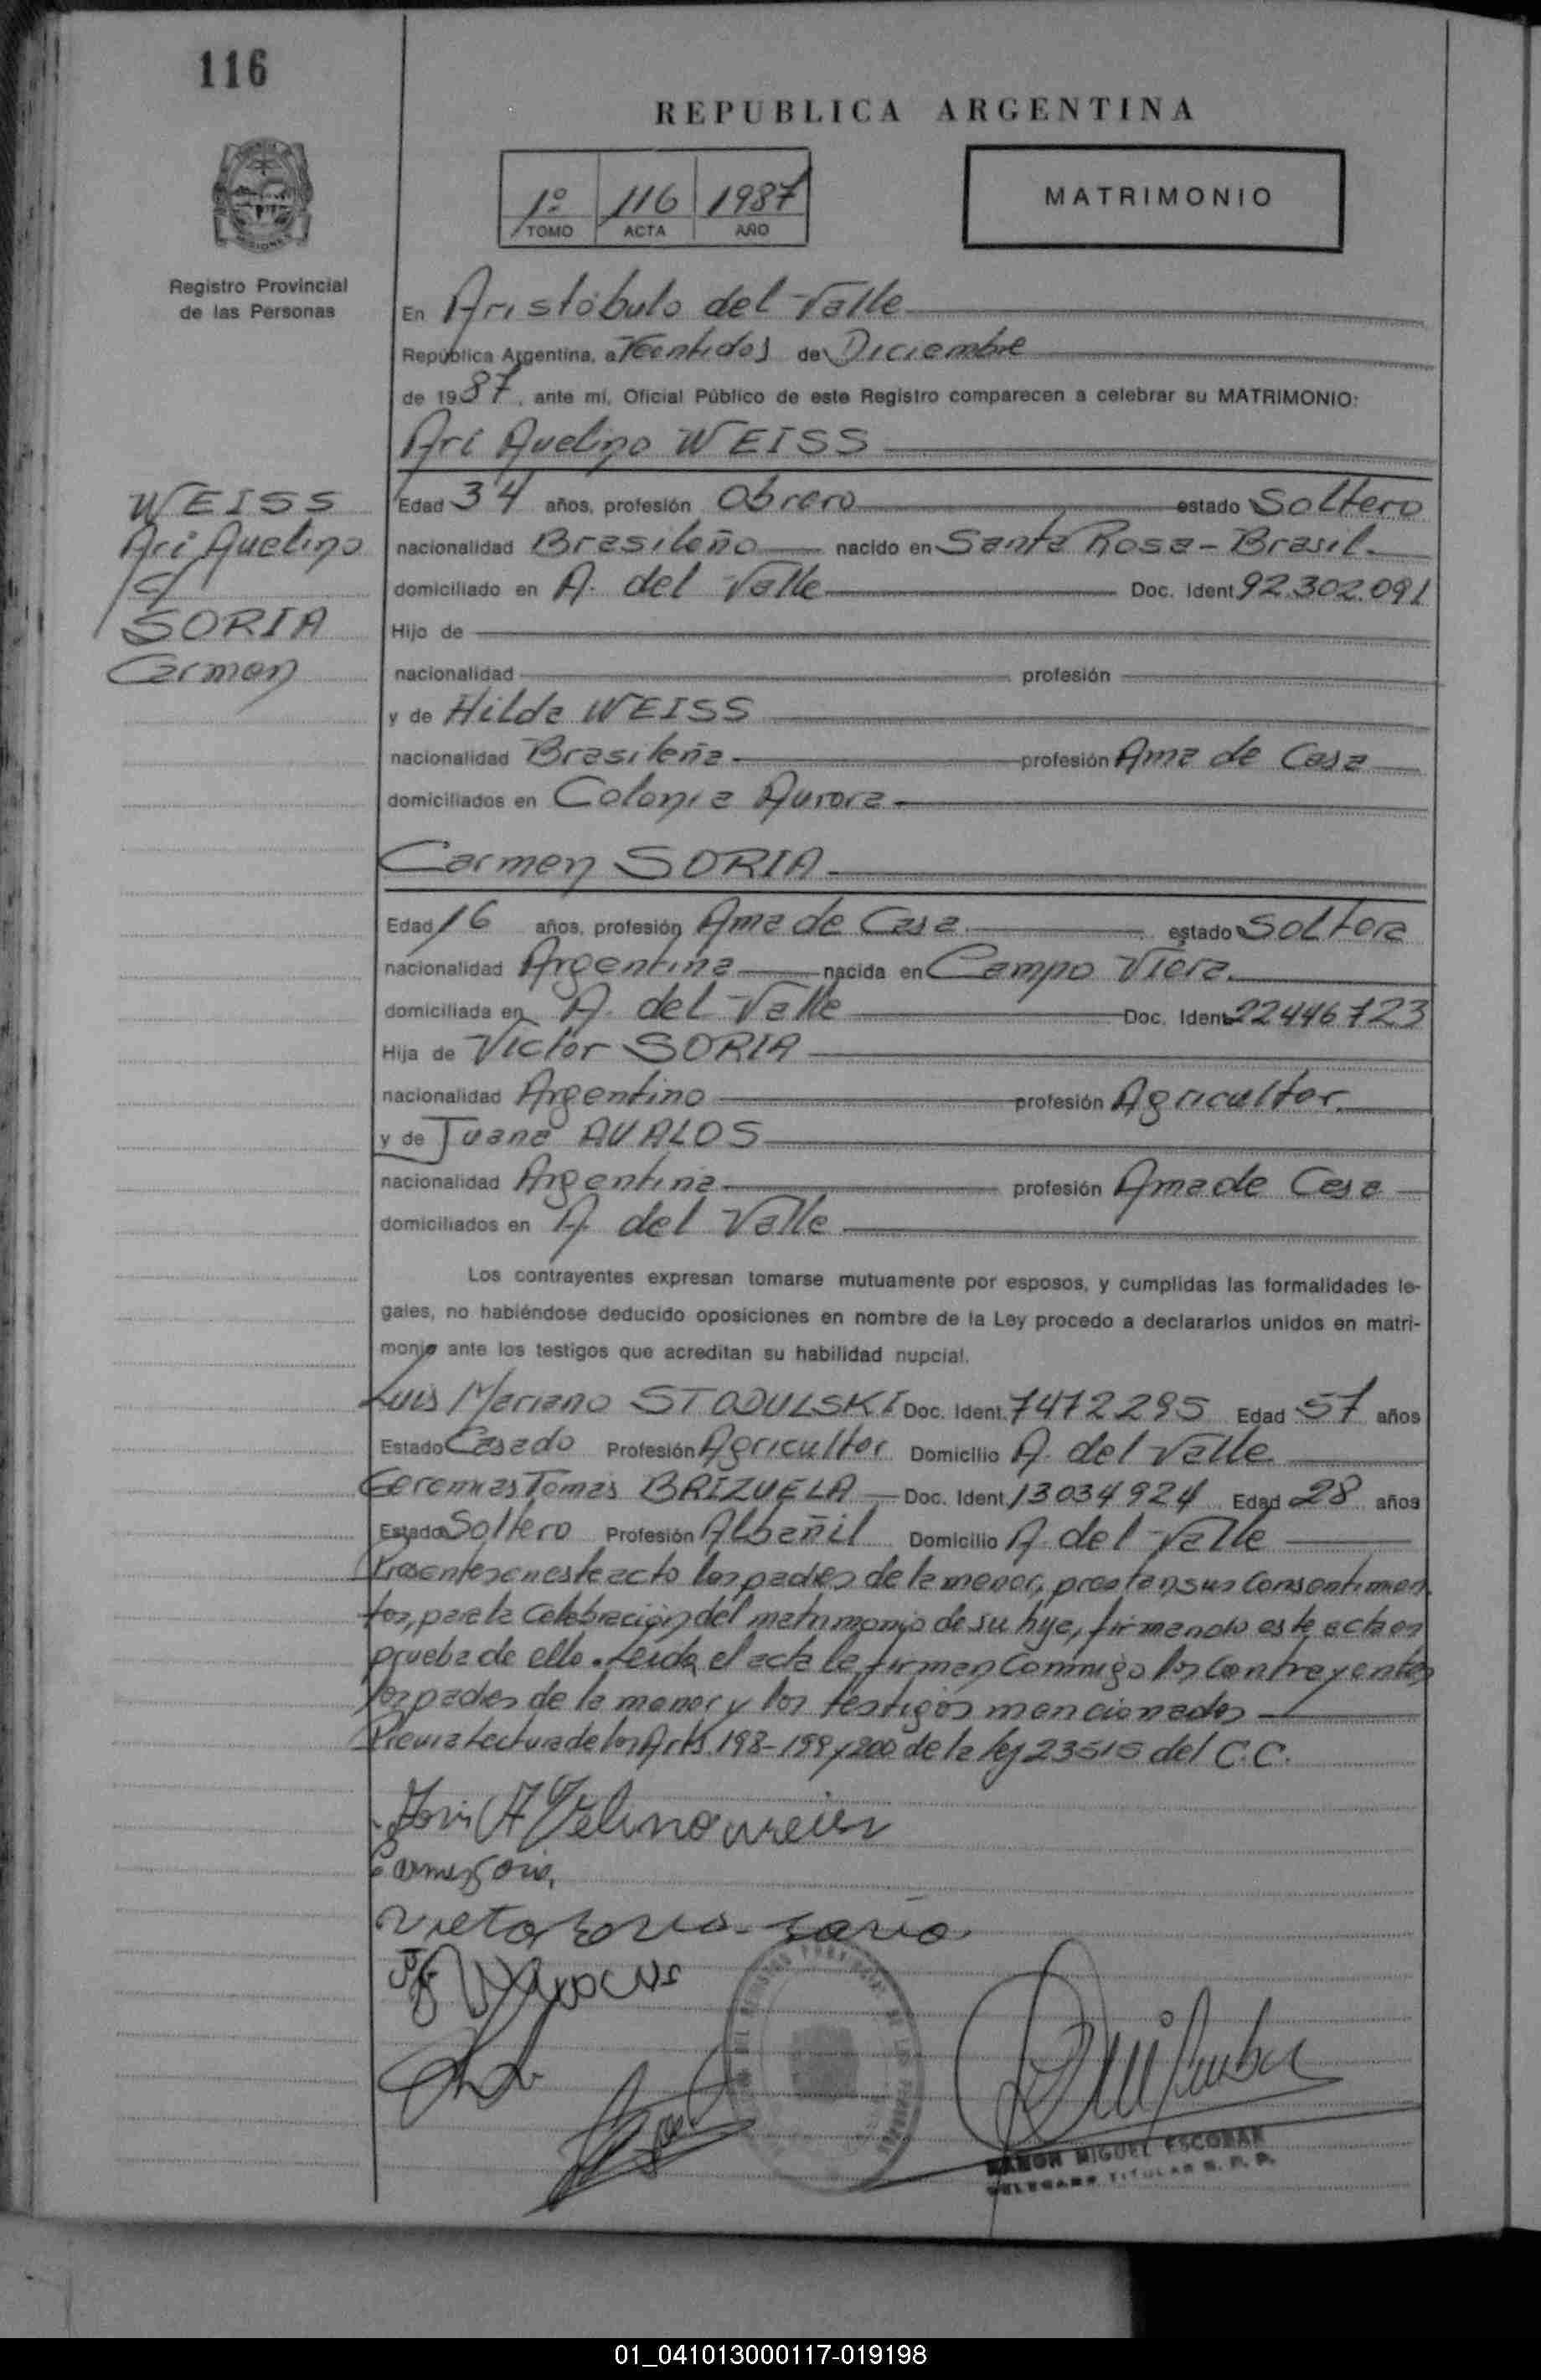 116
REPUBLICA ARGENTINA
1º 116 1987
TOMO ACTA AÑO
MATRIMONIO
MISIONES
Registro Provincial
de las Personas
En Aristóbulo del Valle
República Argentina, a Veentidos de Diciembre
de 1987, ante mí, Oficial Público de este Registro comparecen a celebrar su MATRIMONIO:
Ari Avelino WEISS
WEISS
Ari Avelino
c/
SORIA
Carmen
Edad 34 años, profesión Obrero estado Soltero
nacionalidad Brasileño nacido en Santa Rosa - Brasil.
domiciliado en A. del Valle Doc. Ident. 92.302.091
Hijo de
nacionalidad profesión
y de Hilda WEISS
nacionalidad Brasileña profesión Ama de Casa
domiciliados en Colonia Aurora
Carmen SORIA
Edad 16 años, profesión Ama de Casa estado Soltera
nacionalidad Argentina nacida en Campo Viera.
domiciliada en A. del Valle Doc. Ident. 22446723
Hija de Victor SORIA
nacionalidad Argentino profesión Agricultor
y de Juana AVALOS
nacionalidad Argentina profesión Ama de Casa
domiciliados en A. del Valle
Los contrayentes expresan tomarse mutuamente por esposos, y cumplidas las formalidades le-
gales, no habiéndose deducido oposiciones en nombre de la Ley procedo a declararlos unidos en matri-
monio ante los testigos que acreditan su habilidad nupcial.
Luis Mariano STODULSKI Doc. Ident. 7472295 Edad 57 años
Estado Casado Profesión Agricultor Domicilio A. del Valle
Geremias Tomás BRIZUELA Doc. Ident. 13034924 Edad 28 años
Estado Soltero Profesión Albañil Domicilio A. del Valle
Presentes en este acto los padres de la menor, prestan sus consentimien
tos, para la celebración del matrimonio de su hija, firmando este acta en
prueba de ello. Leída el acta la firman conmigo los contrayentes
los padres de la menor y los testigos mencionados
Previa Lectura de los Arts. 198-199 y 200 de la ley 23515 del C.C.
Avelino weiss
Carmen Soria
RAMON MIGUEL ESCOBAR
DELEGADO TITULAR R. P. P.
01_041013000117-019198